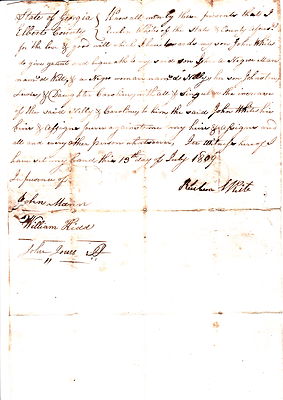 State of Georgia { Know all men by these presents that I
Elbert County { Reuben White of the State & County aforesd
for the love & good will which I have towards my son John White
do give grant and bequeath to my said son John a Negroe Man
named Willy, & a Negroe woman named Nelly, her son Johnston
& Daughter Caroline, with all & singular the increase
of the said Nelly & Caroline to him the said John White his
heirs & assigns forever, my heirs & assigns and
all and every other person whatsoever, In witness hereof I
have set my hand this 13th day of July 1809
In presence of
Reuben White
John Mann
William Kidd
John Jones